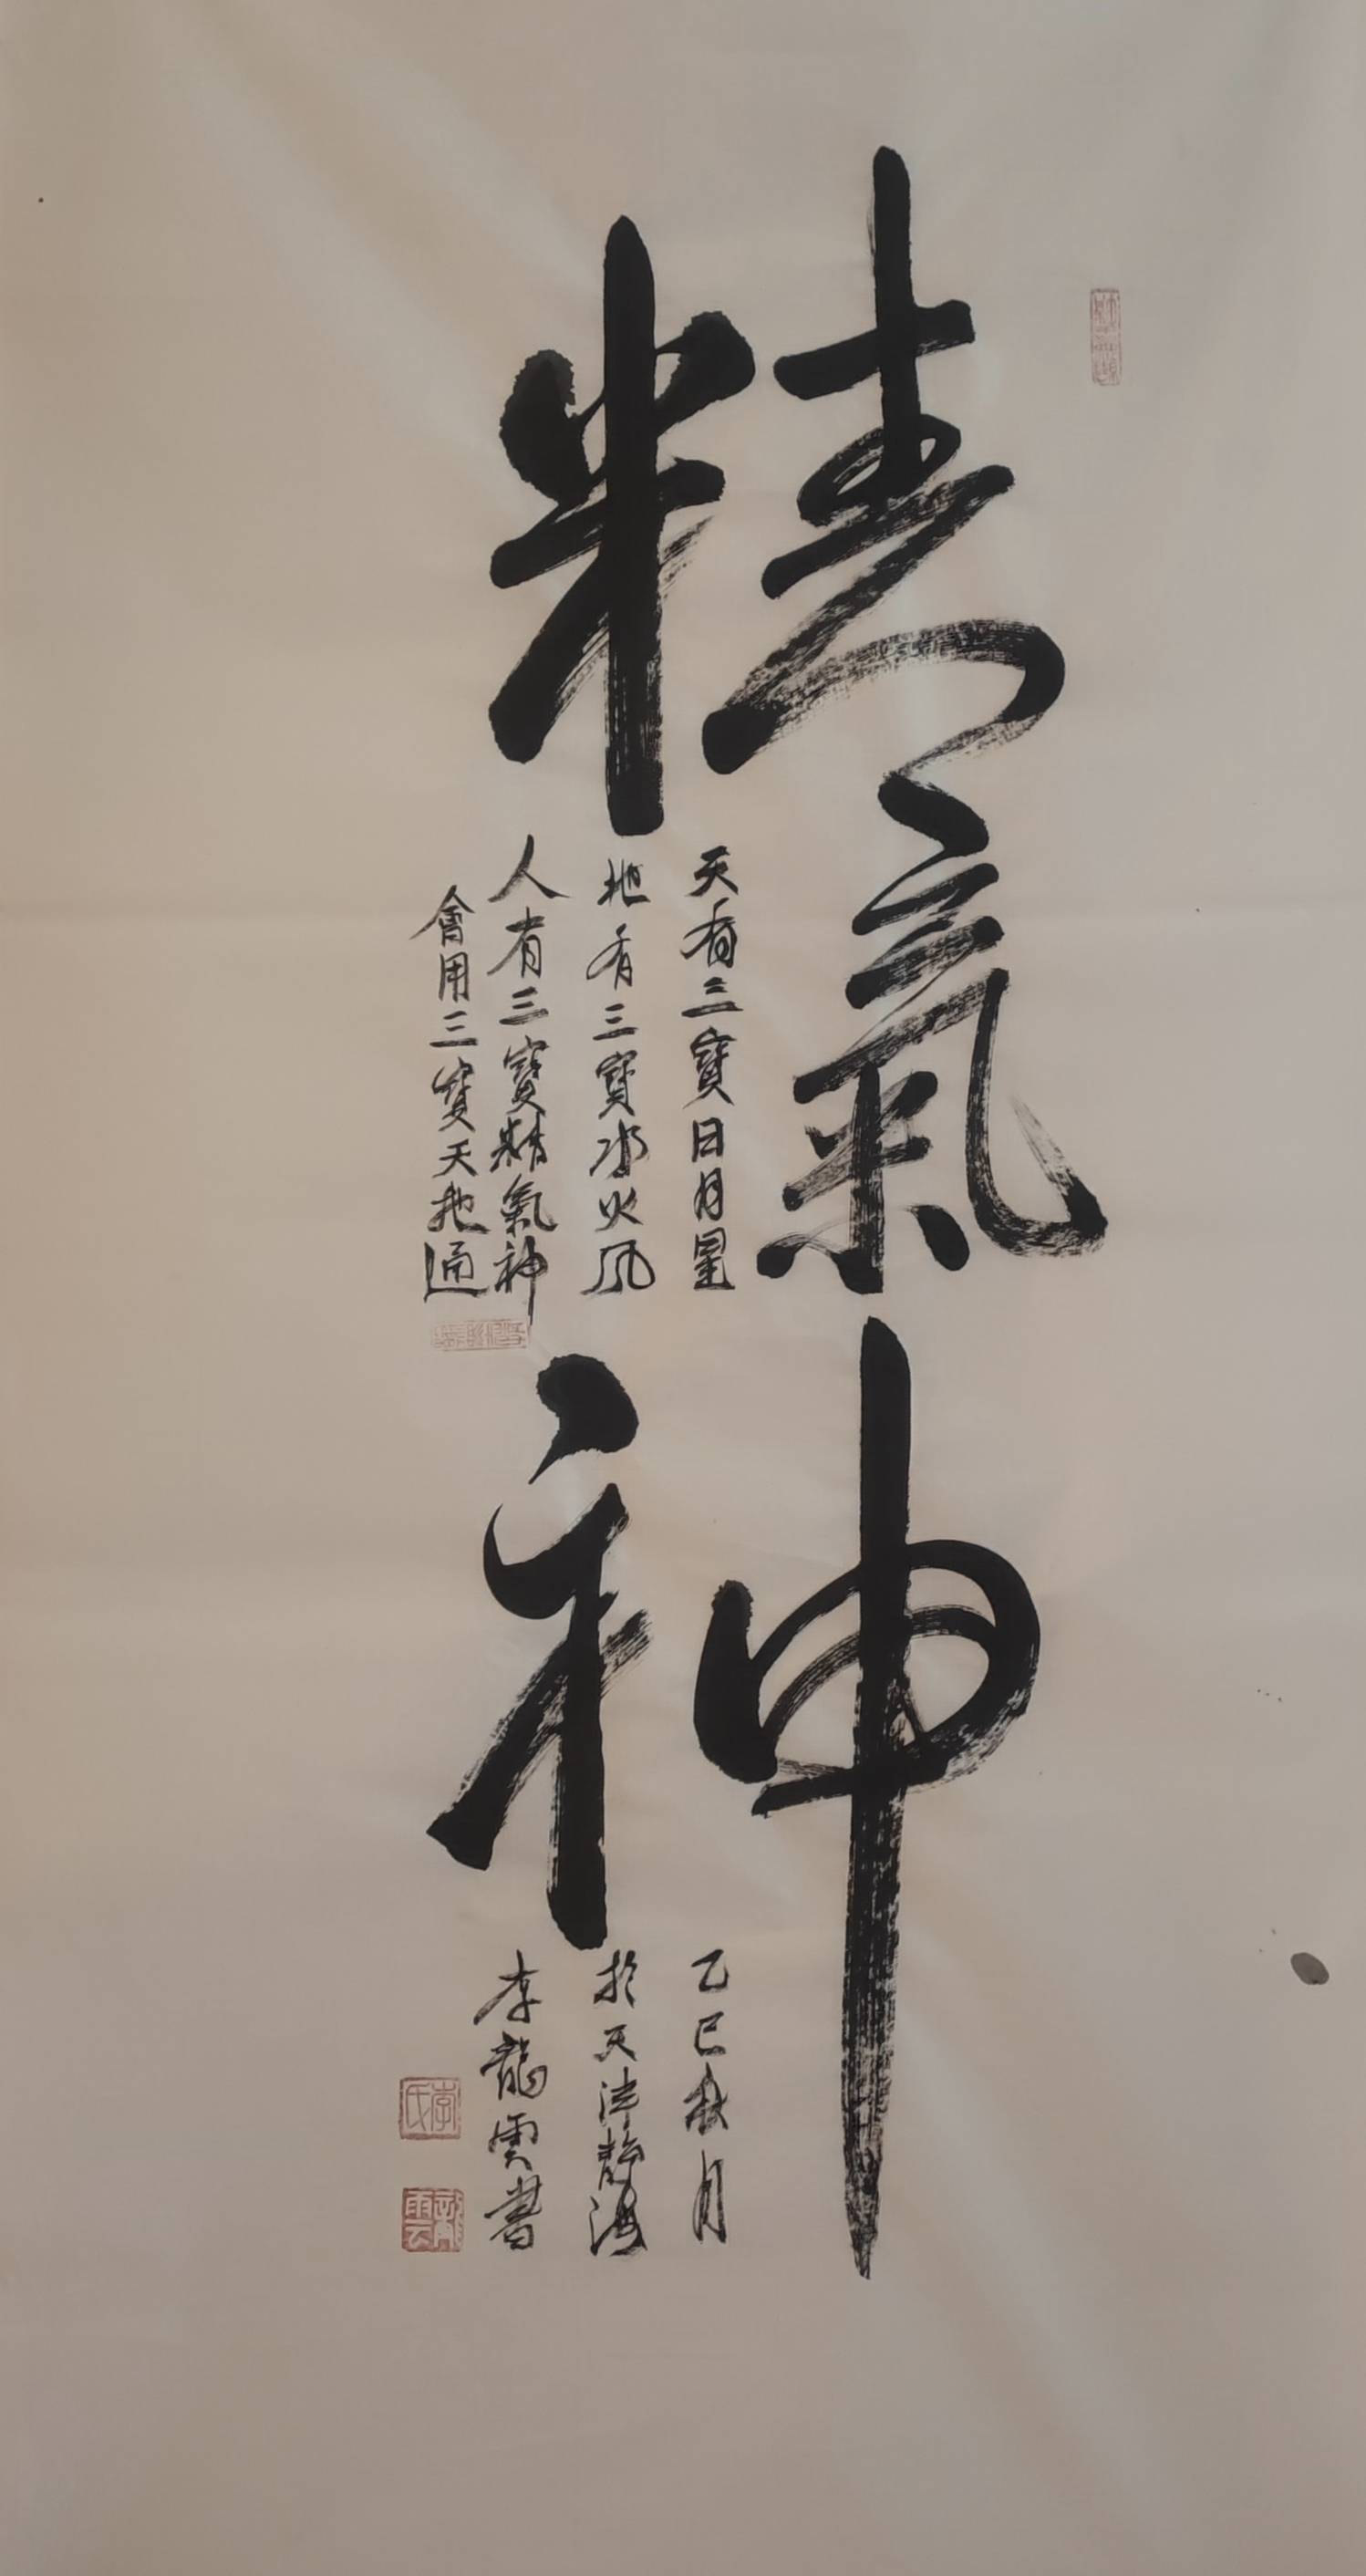 精氣神
天有三寶日月星
地有三寶水火风
人有三寶精氣神
會用三寶天地通
乙巳秋月
於天津静海
李龍雲書
李氏
龍雲